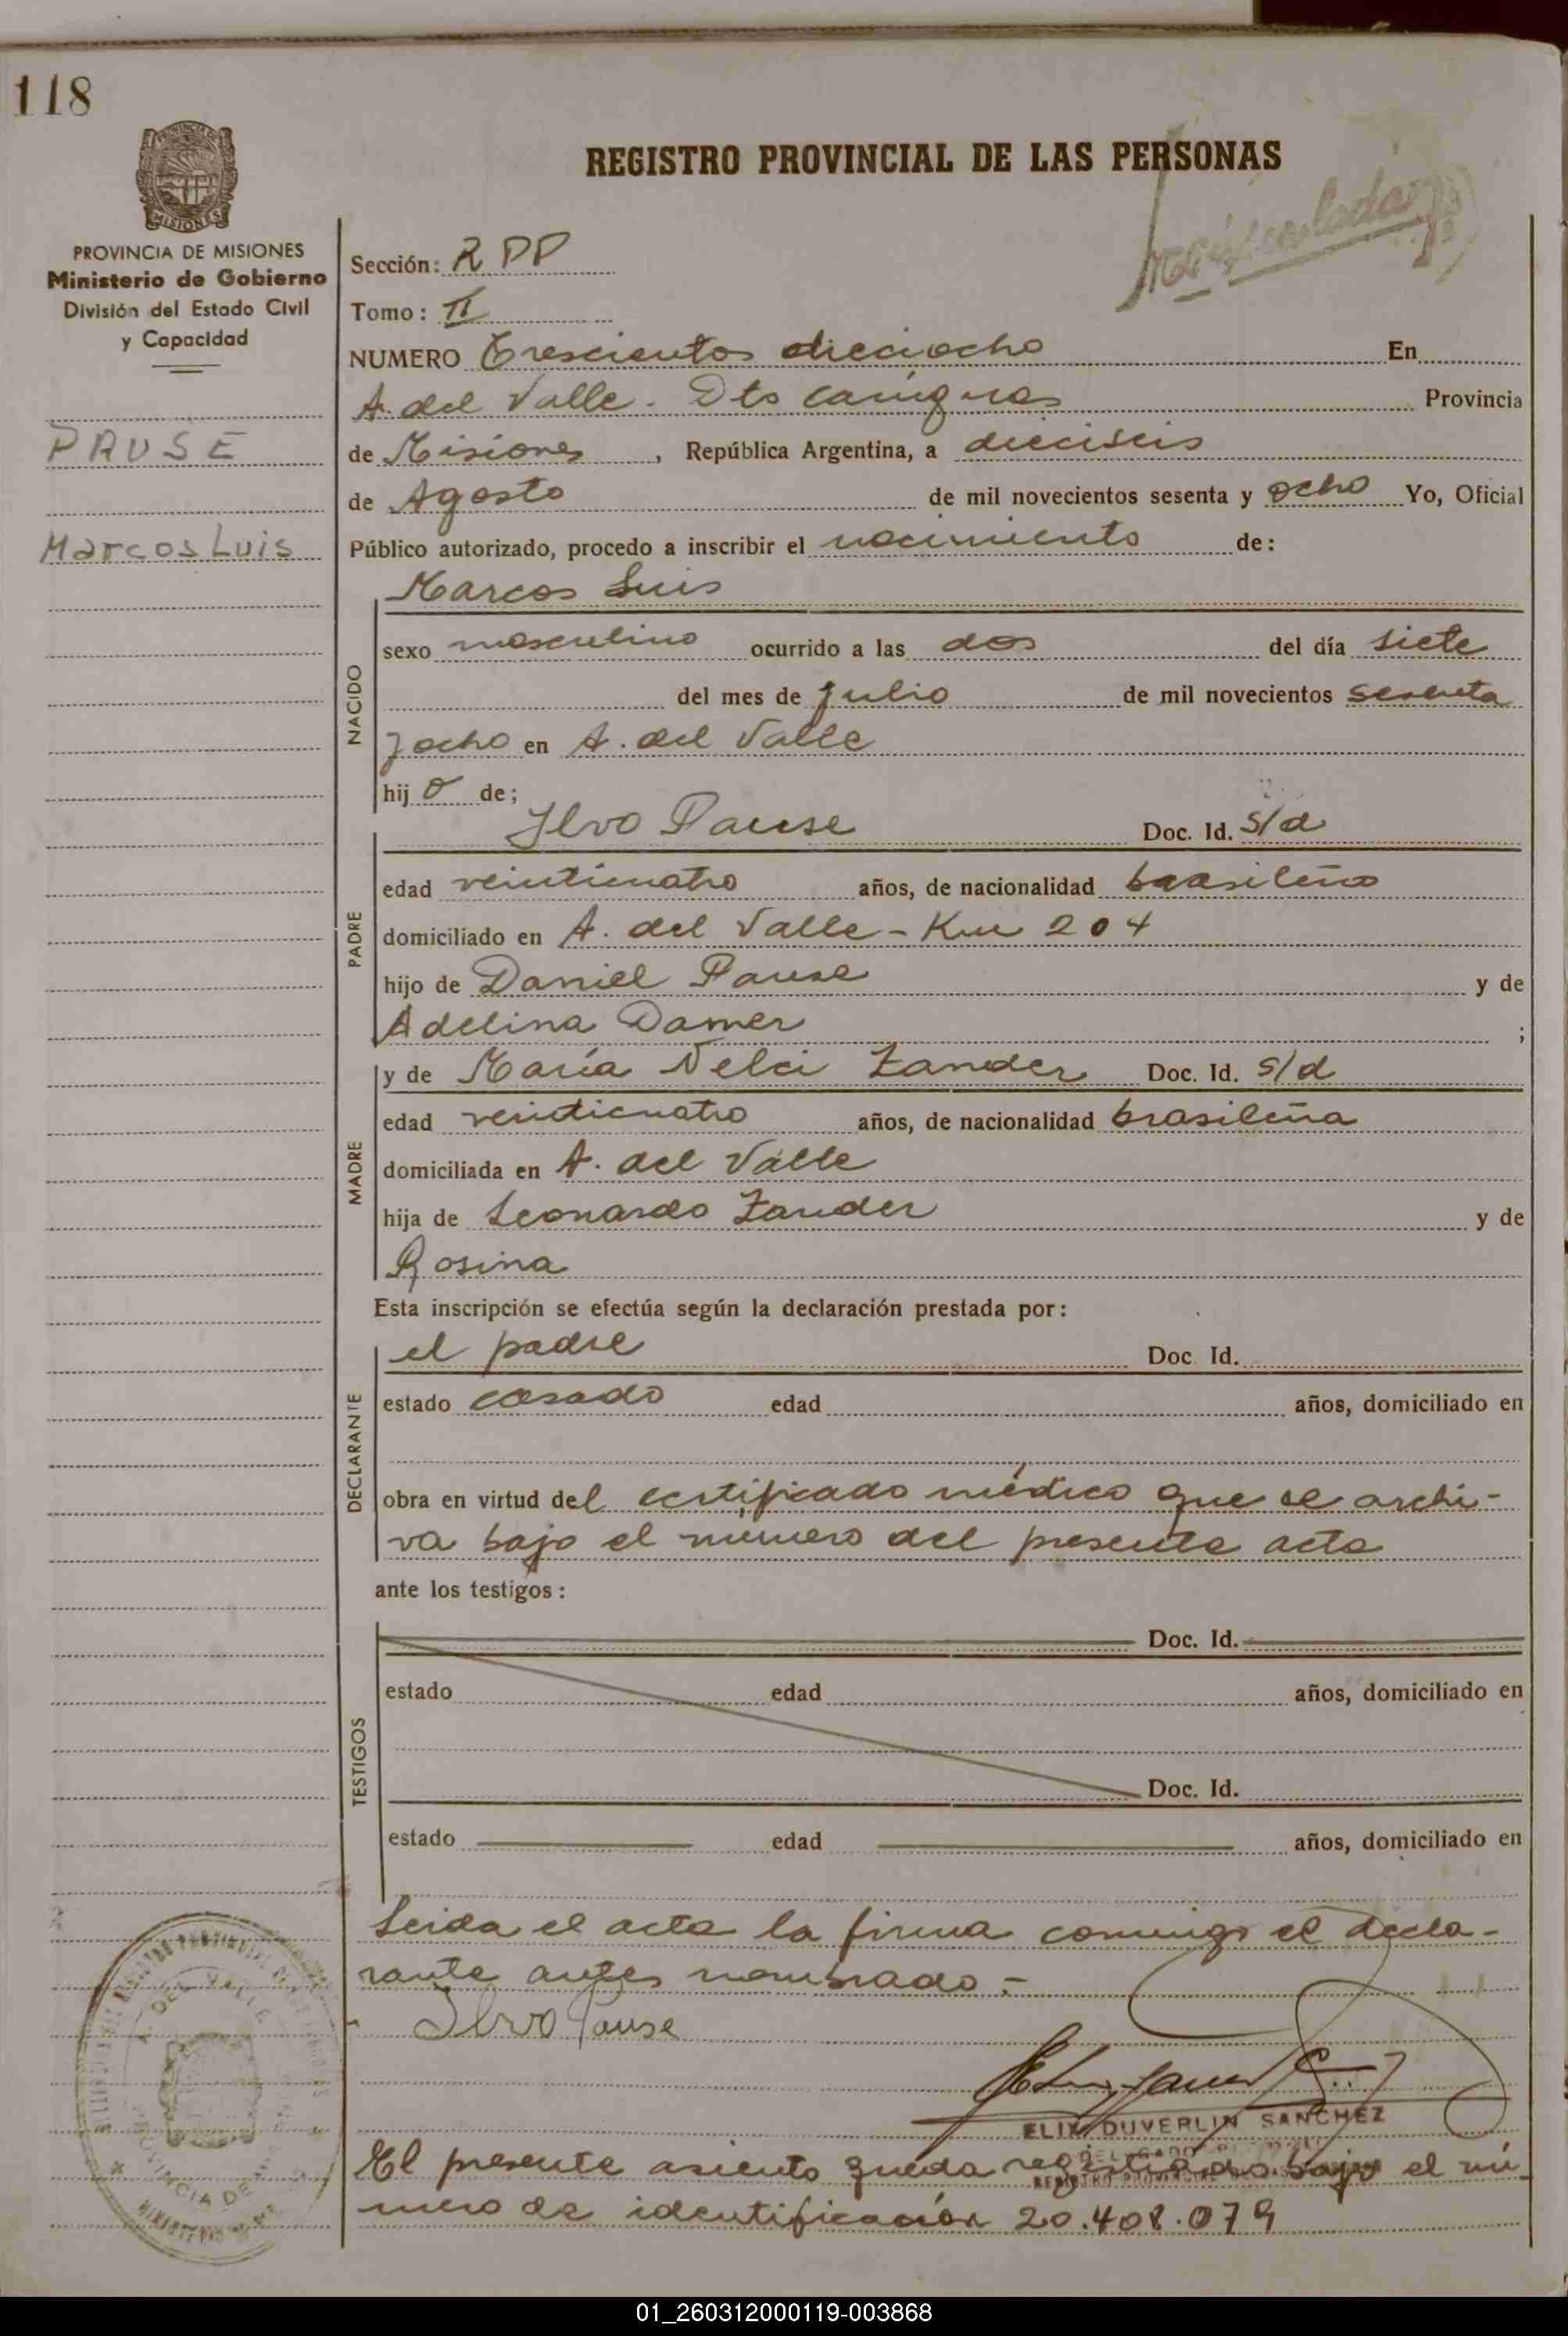 118
REGISTRO PROVINCIAL DE LAS PERSONAS
PROVINCIA DE MISIONES
Ministerio de Gobierno
División del Estado Civil
y Capacidad
PAUSE
Marcos Luis
Sección: R PP
Tomo: II
NUMERO Trescientos dieciocho En
A. del Valle. Dto Cainguas Provincia
de Misiones, República Argentina, a dieciseis
de Agosto de mil novecientos sesenta y ocho Yo, Oficial
Público autorizado, procedo a inscribir el nacimiento de:
Marcos Luis
NACIDO
sexo masculino ocurrido a las dos del día siete
del mes de Julio de mil novecientos sesenta
y ocho en A. del Valle
hijo de;
Ilvo Pause Doc. Id. s/d
PADRE
edad veinticuatro años, de nacionalidad brasileño
domiciliado en A. del Valle - Km 204
hijo de Daniel Pause y de
Adelina Damer ;
y de María Nelci Zander Doc. Id. s/d
MADRE
edad veinticuatro años, de nacionalidad brasileña
domiciliada en A. del Valle
hija de Leonardo Zander y de
Rosina
Esta inscripción se efectúa según la declaración prestada por:
el padre Doc. Id.
DECLARANTE
estado casado edad años, domiciliado en
obra en virtud del certificado médico que se archi-
va bajo el número del presente acta
ante los testigos:
Doc. Id.
TESTIGOS
estado edad años, domiciliado en
Doc. Id.
estado edad años, domiciliado en
Leida el acta la firma conmigo el decla-
rante antes nombrado.-
Ilvo Pause
DUVERLIN SANCHEZ
El presente asiento queda registrado bajo el nú-
mero de identificación 20.408.079
A. DEL VALLE
PROVINCIA DE
01_260312000119-003868